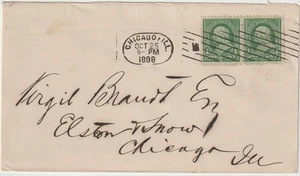 CHICAGO, ILL.
OCT 25
6- PM
1898
Virgil Brandt Esq
Elston & Snow
Chicago Ill